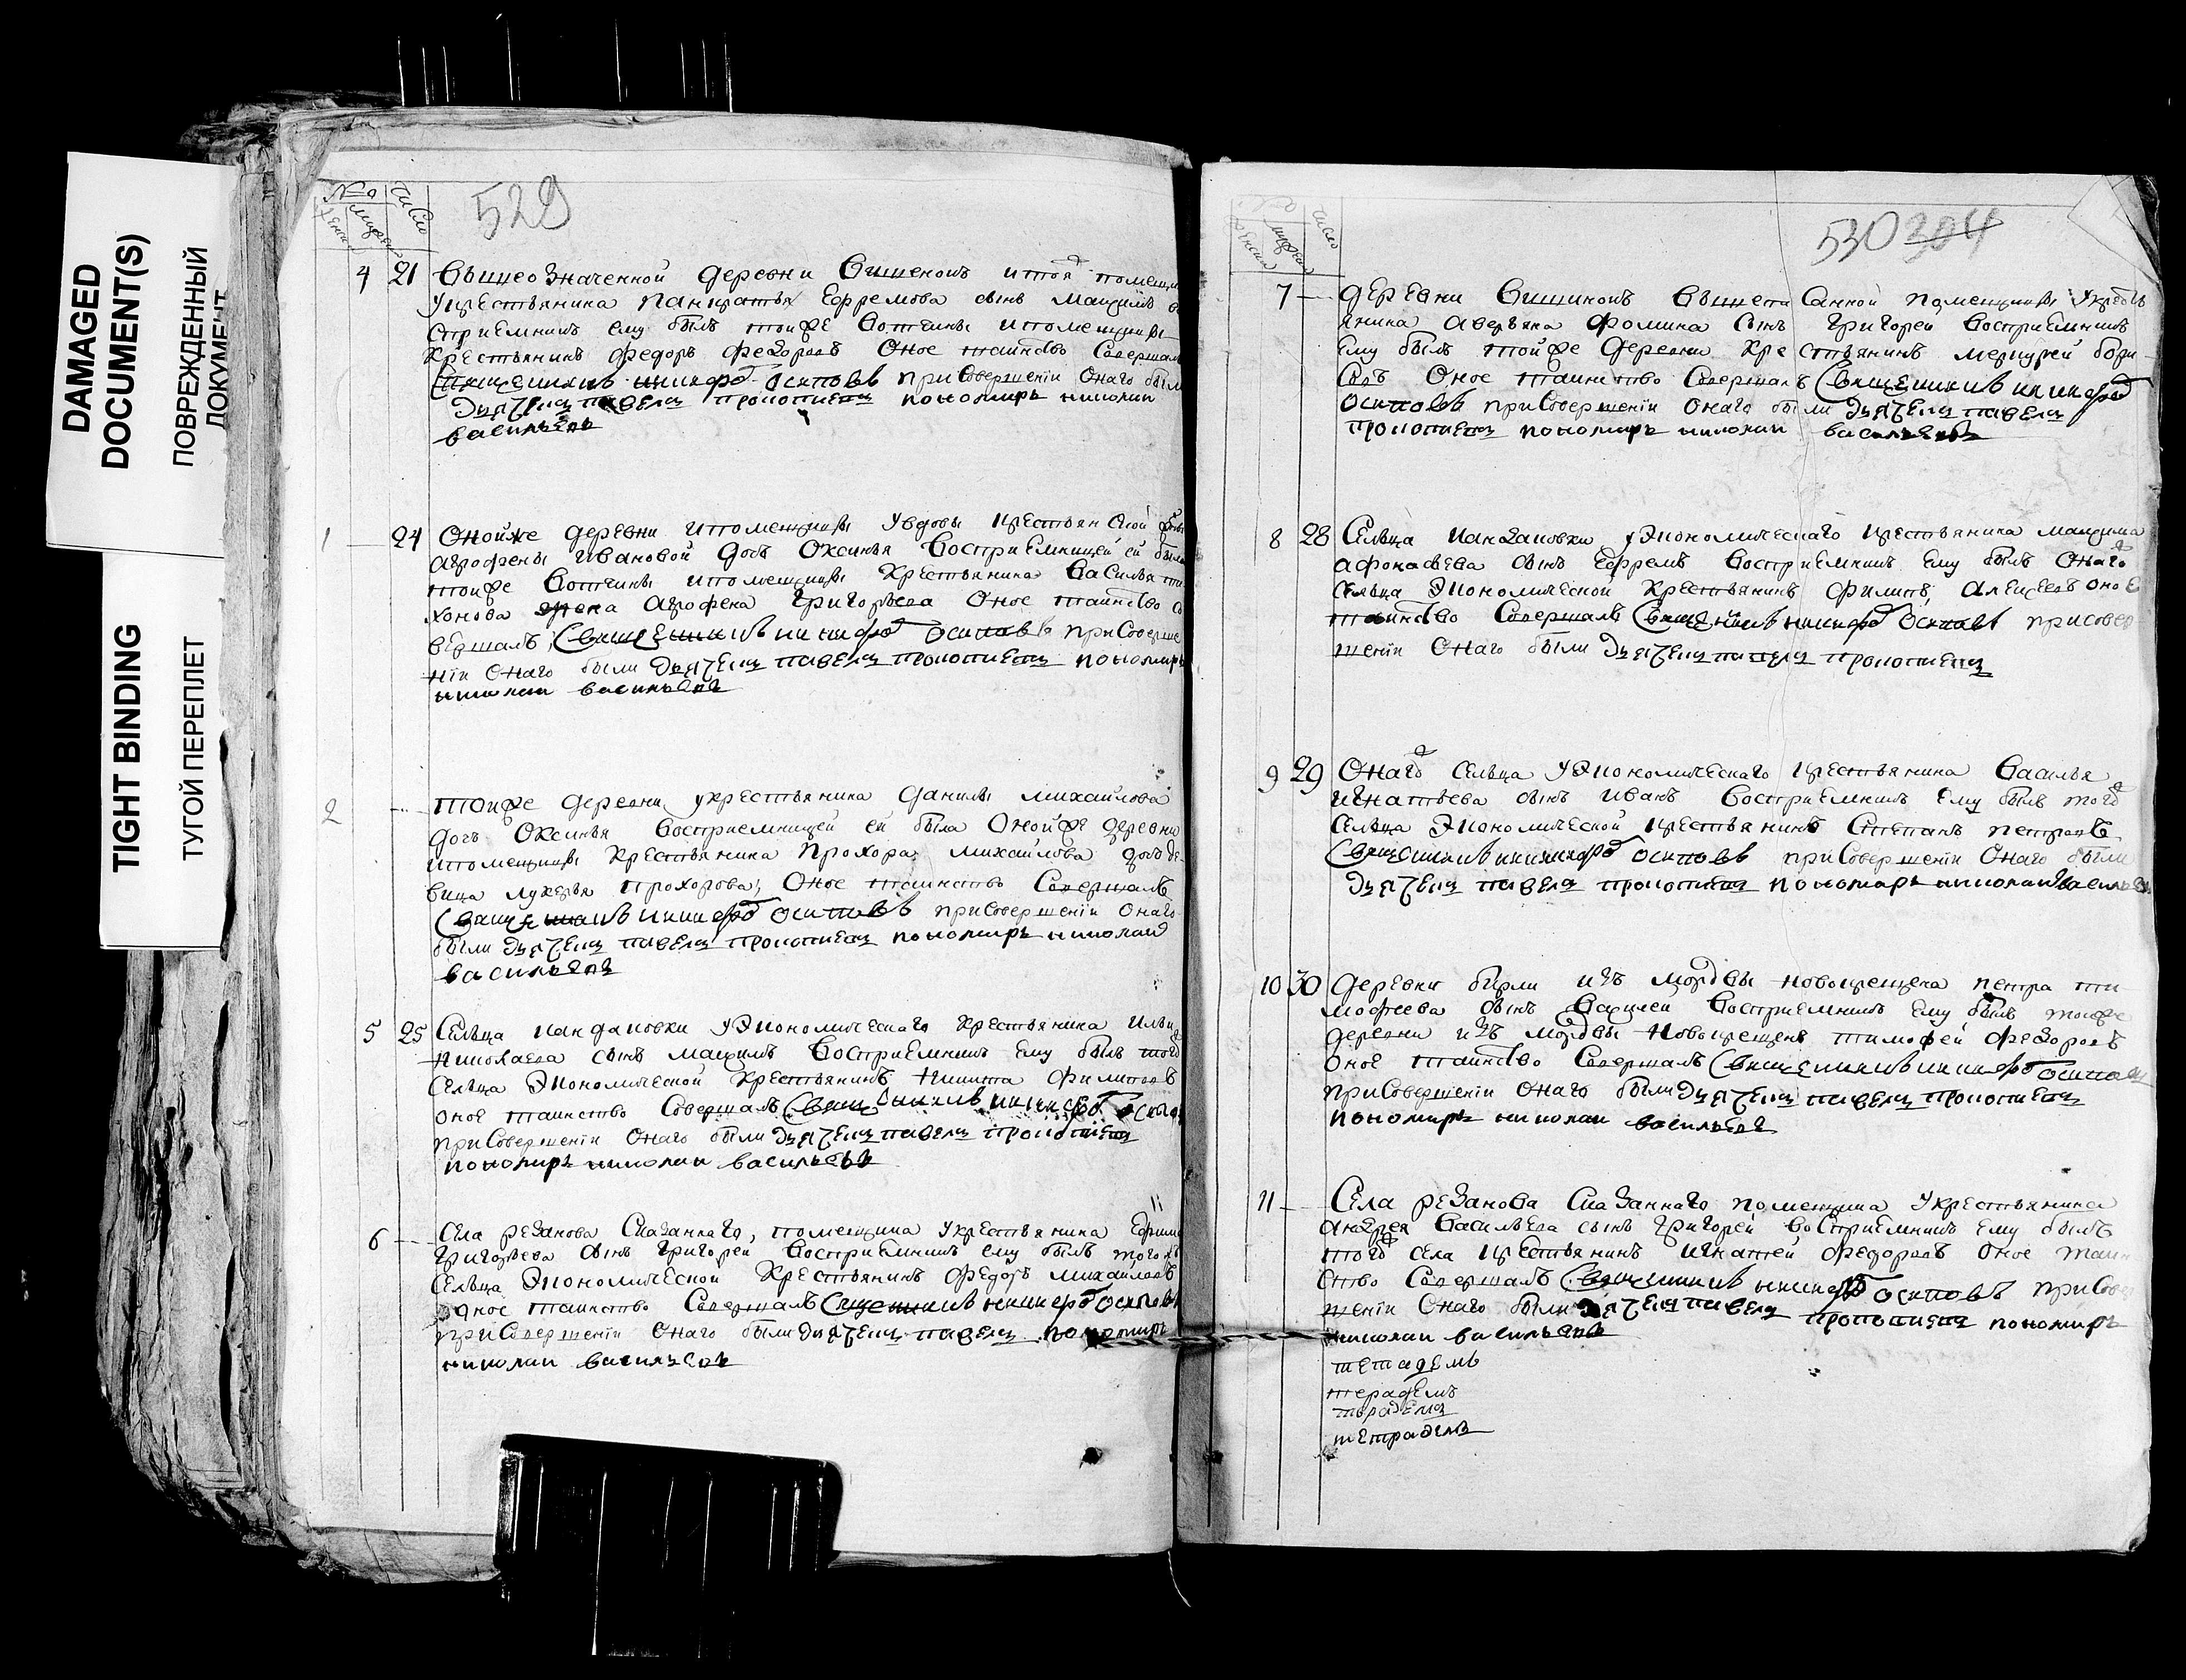 DAMAGED
DOCUMENT(S)
ПОВРЕЖДЕННЫЙ
ДОКУМЕНТ
TIGHT BINDING
ТУГОЙ ПЕРЕПЛЕТ
№
число
529
4 21 вышеозначенной деревни Вишенокъ и тоя помещи
у крестьянина Панкратья Ефремова сынъ Максимъ во
сприемникъ ему былъ тойже вотчины и помещицы
крестьянинъ Федоръ Федоровъ оное таинство совершалъ
священникъ Никифоръ Осиповъ при совершении онаго были
дьячекъ Павелъ Прокопиевъ пономарь Николай
Васильевъ
1 24 Онойже деревни и помещицы у вдовы крестьянской
Агрофены Ивановой дочь Оксинья восприемницей ей была
тойже вотчины и помещицы крестьянина Василья ти
хонова Агрофена Григорьева оное таинство со
вершалъ священникъ Никифоръ Осиповъ при соверше
нии онаго были дьячекъ Павелъ Прокопиевъ пономарь
Николай Васильевъ
2 тойже деревни у крестьянина Данилы Михайлова
дочь Оксинья восприемницей ей была онойже деревни
и помещицы крестьянина Прохора Михайлова дочь де
вица Лукерья Прохорова, оное таинство совершалъ
священникъ Никифоръ Осиповъ при совершении онаго
были дьячекъ Павелъ Прокопиевъ пономарь Николай
Васильевъ
5 25 Сельца у экономическаго крестьянина Ильи
Николаева сынъ Максимъ восприемникъ ему былъ того
сельца экономической крестьянинъ Никита Филиповъ
оное таинство совершалъ священникъ Никифоръ
при совершении онаго были дьячекъ Павелъ Прокопиевъ
пономарь Николай Васильевъ
6 Села Резанова сказаннаго, помещика у крестьянина
Григорьева сынъ Григорей восприемникъ ему былъ того
сельца экономической крестьянинъ Федоръ Михайловъ
оное таинство совершалъ священникъ Никифоръ Осиповъ
при совершении онаго были дьячекъ Павелъ пономарь
Николай Васильевъ
число
530 304
7 деревни Вишинокъ вышеписанной помещицы у кресть
янина Аверьяна Фомина сынъ Григорей восприемникъ
ему былъ тойже деревни крестьянинъ Меркурей Бори
совъ оное таинство совершалъ священникъ Никифоръ
Осиповъ при совершении онаго были дьячекъ Павелъ
Прокопиевъ пономарь Николай Васильевъ
8 28 Сельца у экономическаго крестьянина Максима
Афонасьева сынъ Ефремъ восприемникъ ему былъ онаго
сельца экономической крестьянинъ Филипъ Алексеевъ оное
таинство совершалъ священникъ Никифоръ Осиповъ при совер
шении онаго были дьячекъ Павелъ Прокопиевъ
9 29 Онаго сельца у экономическаго крестьянина Василья
Игнатьева сынъ Иванъ восприемникъ ему былъ того
сельца экономической крестьянинъ Степанъ Петровъ
священникъ Никифоръ Осиповъ при совершении онаго были
дьячекъ Павелъ Прокопиевъ пономарь Николай Васильевъ
10 30 деревни изъ мордвы новокрещена Петра ти
мофеева сынъ Василей восприемникъ ему былъ тойже
деревни изъ мордвы новокрещенъ Тимофей Федоровъ
оное таинство совершалъ священникъ Никифоръ Осиповъ
при совершении онаго были дьячекъ Павелъ Прокопиевъ
пономарь Николай Васильевъ
11 Села Резанова сказаннаго помещика у крестьянина
Андрея Васильева сынъ Григорей восприемникъ ему былъ
того села крестьянинъ Игнатей Федоровъ оное таин
ство совершалъ священникъ Никифоръ Осиповъ при совер
шении онаго были дьячекъ Павелъ Прокопиевъ пономарь
Николай Васильевъ